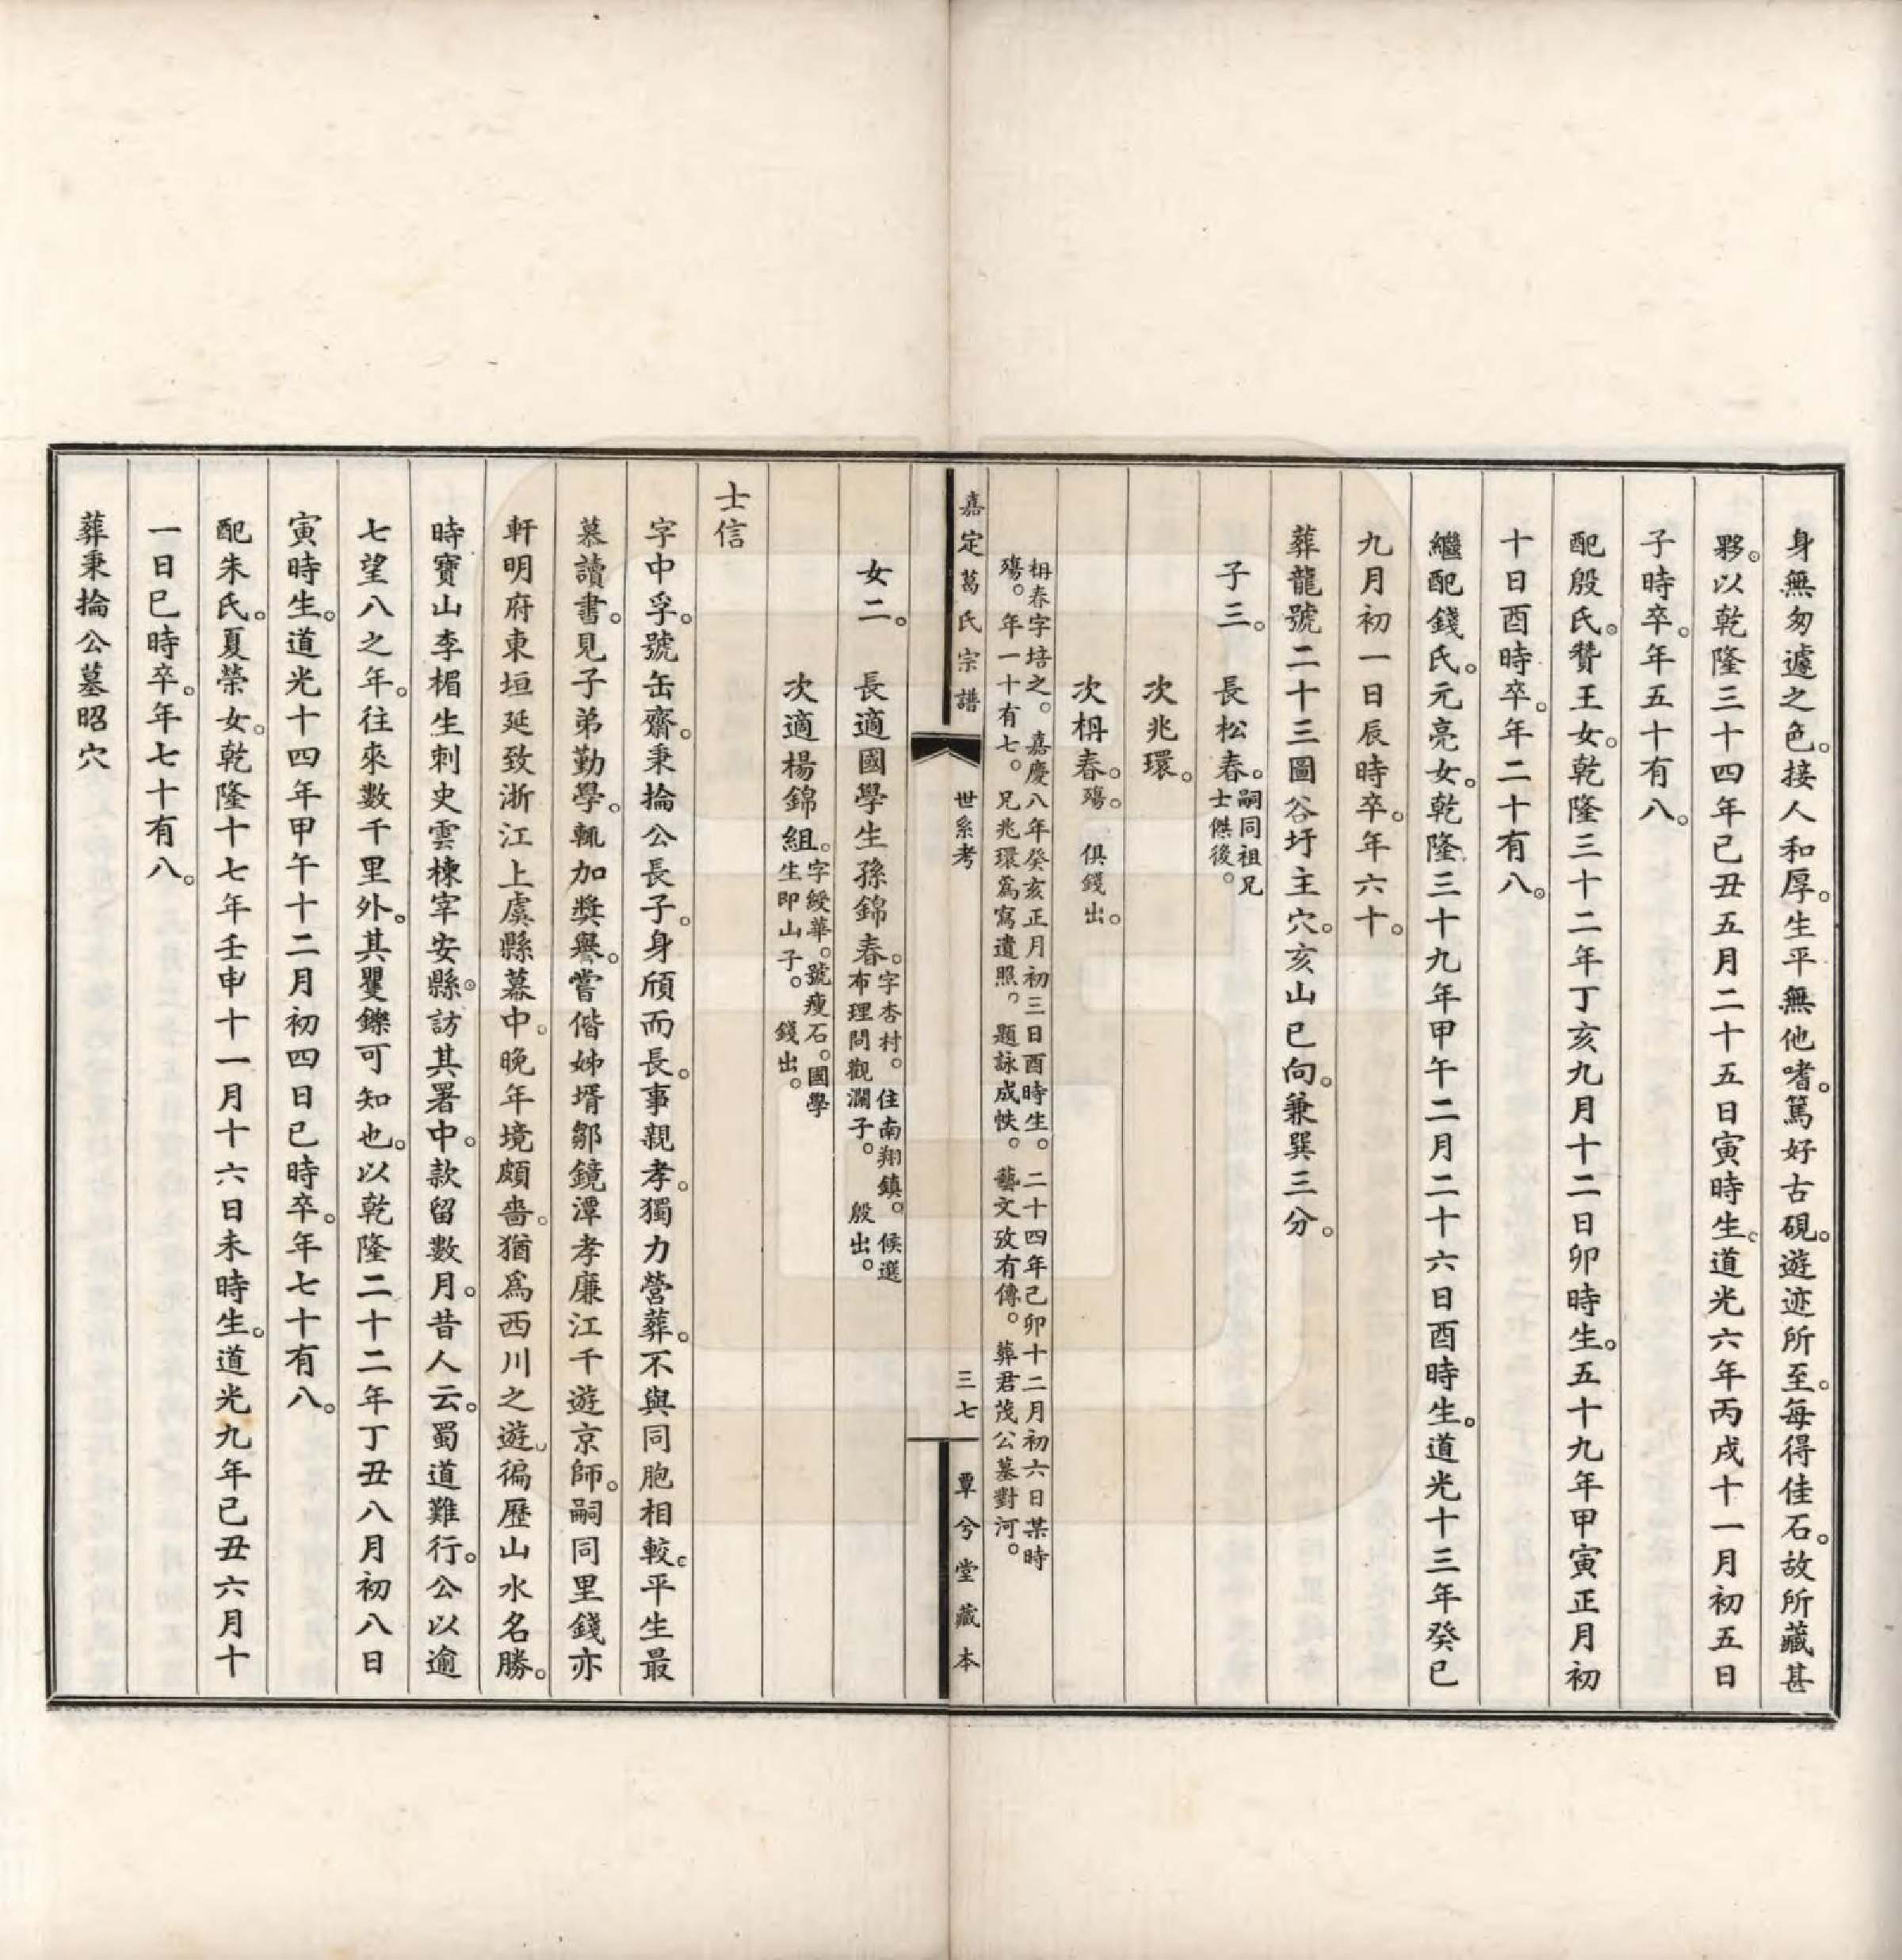 身無匆遽之色。接人和厚。生平無他嗜。篤好古硯。遊迹所至。每得佳石。故所藏甚
夥。以乾隆三十四年己丑五月二十五日寅時生。道光六年丙戌十一月初五日
子時卒。年五十有八。
配殷氏。贊王女。乾隆三十二年丁亥九月十二日卯時生。五十九年甲寅正月初
十日酉時卒。年二十有八。
繼配錢氏。元亮女。乾隆三十九年甲午二月二十六日酉時生。道光十三年癸巳
九月初一日辰時卒。年六十。
葬龍號二十三圖谷圩主穴。亥山巳向。兼巽三分。
子三。 長松春。嗣同祖兄
士傑後。
次兆環。
次枬春。殤。 俱錢出。
枬春字培之。嘉慶八年癸亥正月初三日酉時生。二十四年己卯十二月初六日某時
殤。年一十有七。兄兆環爲寫遺照。題詠成帙。藝文攷有傳。葬君茂公墓對河。
嘉定葛氏宗譜 世系考 三七 覃兮堂藏本
女二。 長適國學生孫錦春。字杏村。住南翔鎮。候選
布理問觀瀾子。 殷出。
次適楊錦組。字綬華。號瘦石。國學
生即山子。 錢出。
士信
字中孚。號缶齋。秉掄公長子。身頎而長。事親孝。獨力營葬。不與同胞相較。平生最
慕讀書。見子弟勤學。輒加獎譽。嘗偕姊壻鄒鏡潭孝廉江千遊京師。嗣同里錢亦
軒明府東垣延致浙江上虞縣幕中。晚年境頗嗇。猶爲西川之遊。徧歷山水名勝。
時寶山李楣生刺史雲棟宰安縣。訪其署中。款留數月。昔人云。蜀道難行。公以逾
七望八之年。往來數千里外。其矍鑠可知也。以乾隆二十二年丁丑八月初八日
寅時生。道光十四年甲午十二月初四日巳時卒。年七十有八。
配朱氏。夏榮女。乾隆十七年壬申十一月十六日未時生。道光九年己丑六月十
一日巳時卒。年七十有八。
葬秉掄公墓昭穴